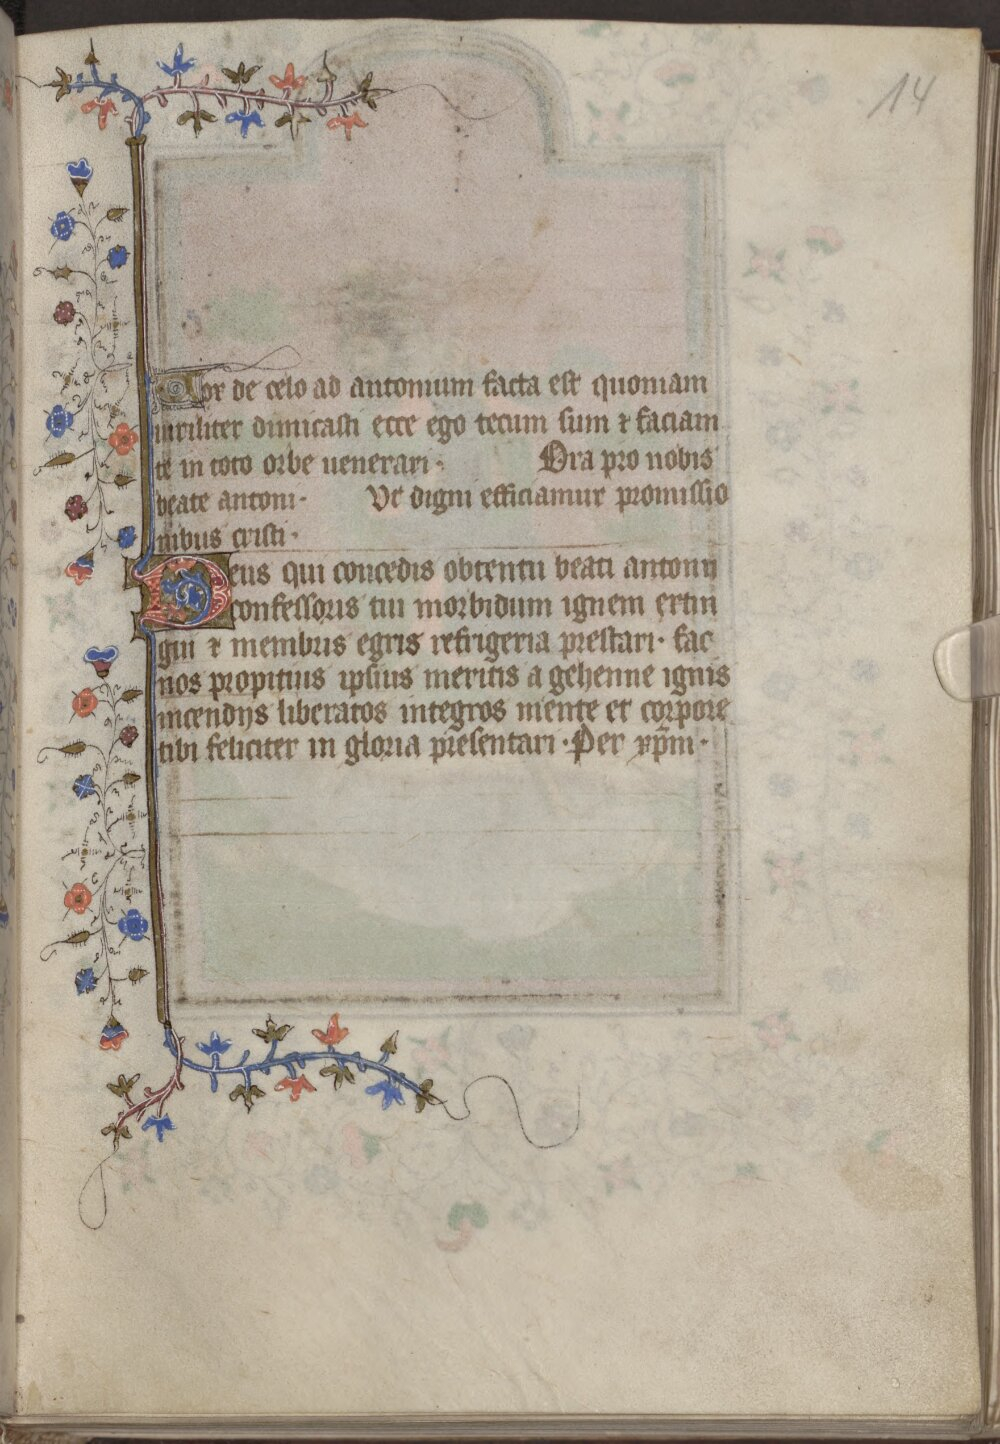 14
Vox de celo ad antonium facta est quoniam
uiriliter dimicasti ecce ego tecum sum ⁊ faciam
te in toto orbe uenerari · Ora pro nobis
beate antoni · Vt digni efficiamur promissio
nibus cristi ·
Deus qui concedis obtentu beati antonii
confessoris tui morbidum ignem extin
gui ⁊ membris egris refrigeria prestari · fac
nos propitius ipsius meritis a gehenne ignis
incendijs liberatos integros mente et corpore
tibi feliciter in gloria presentari · Per xp̄m ·